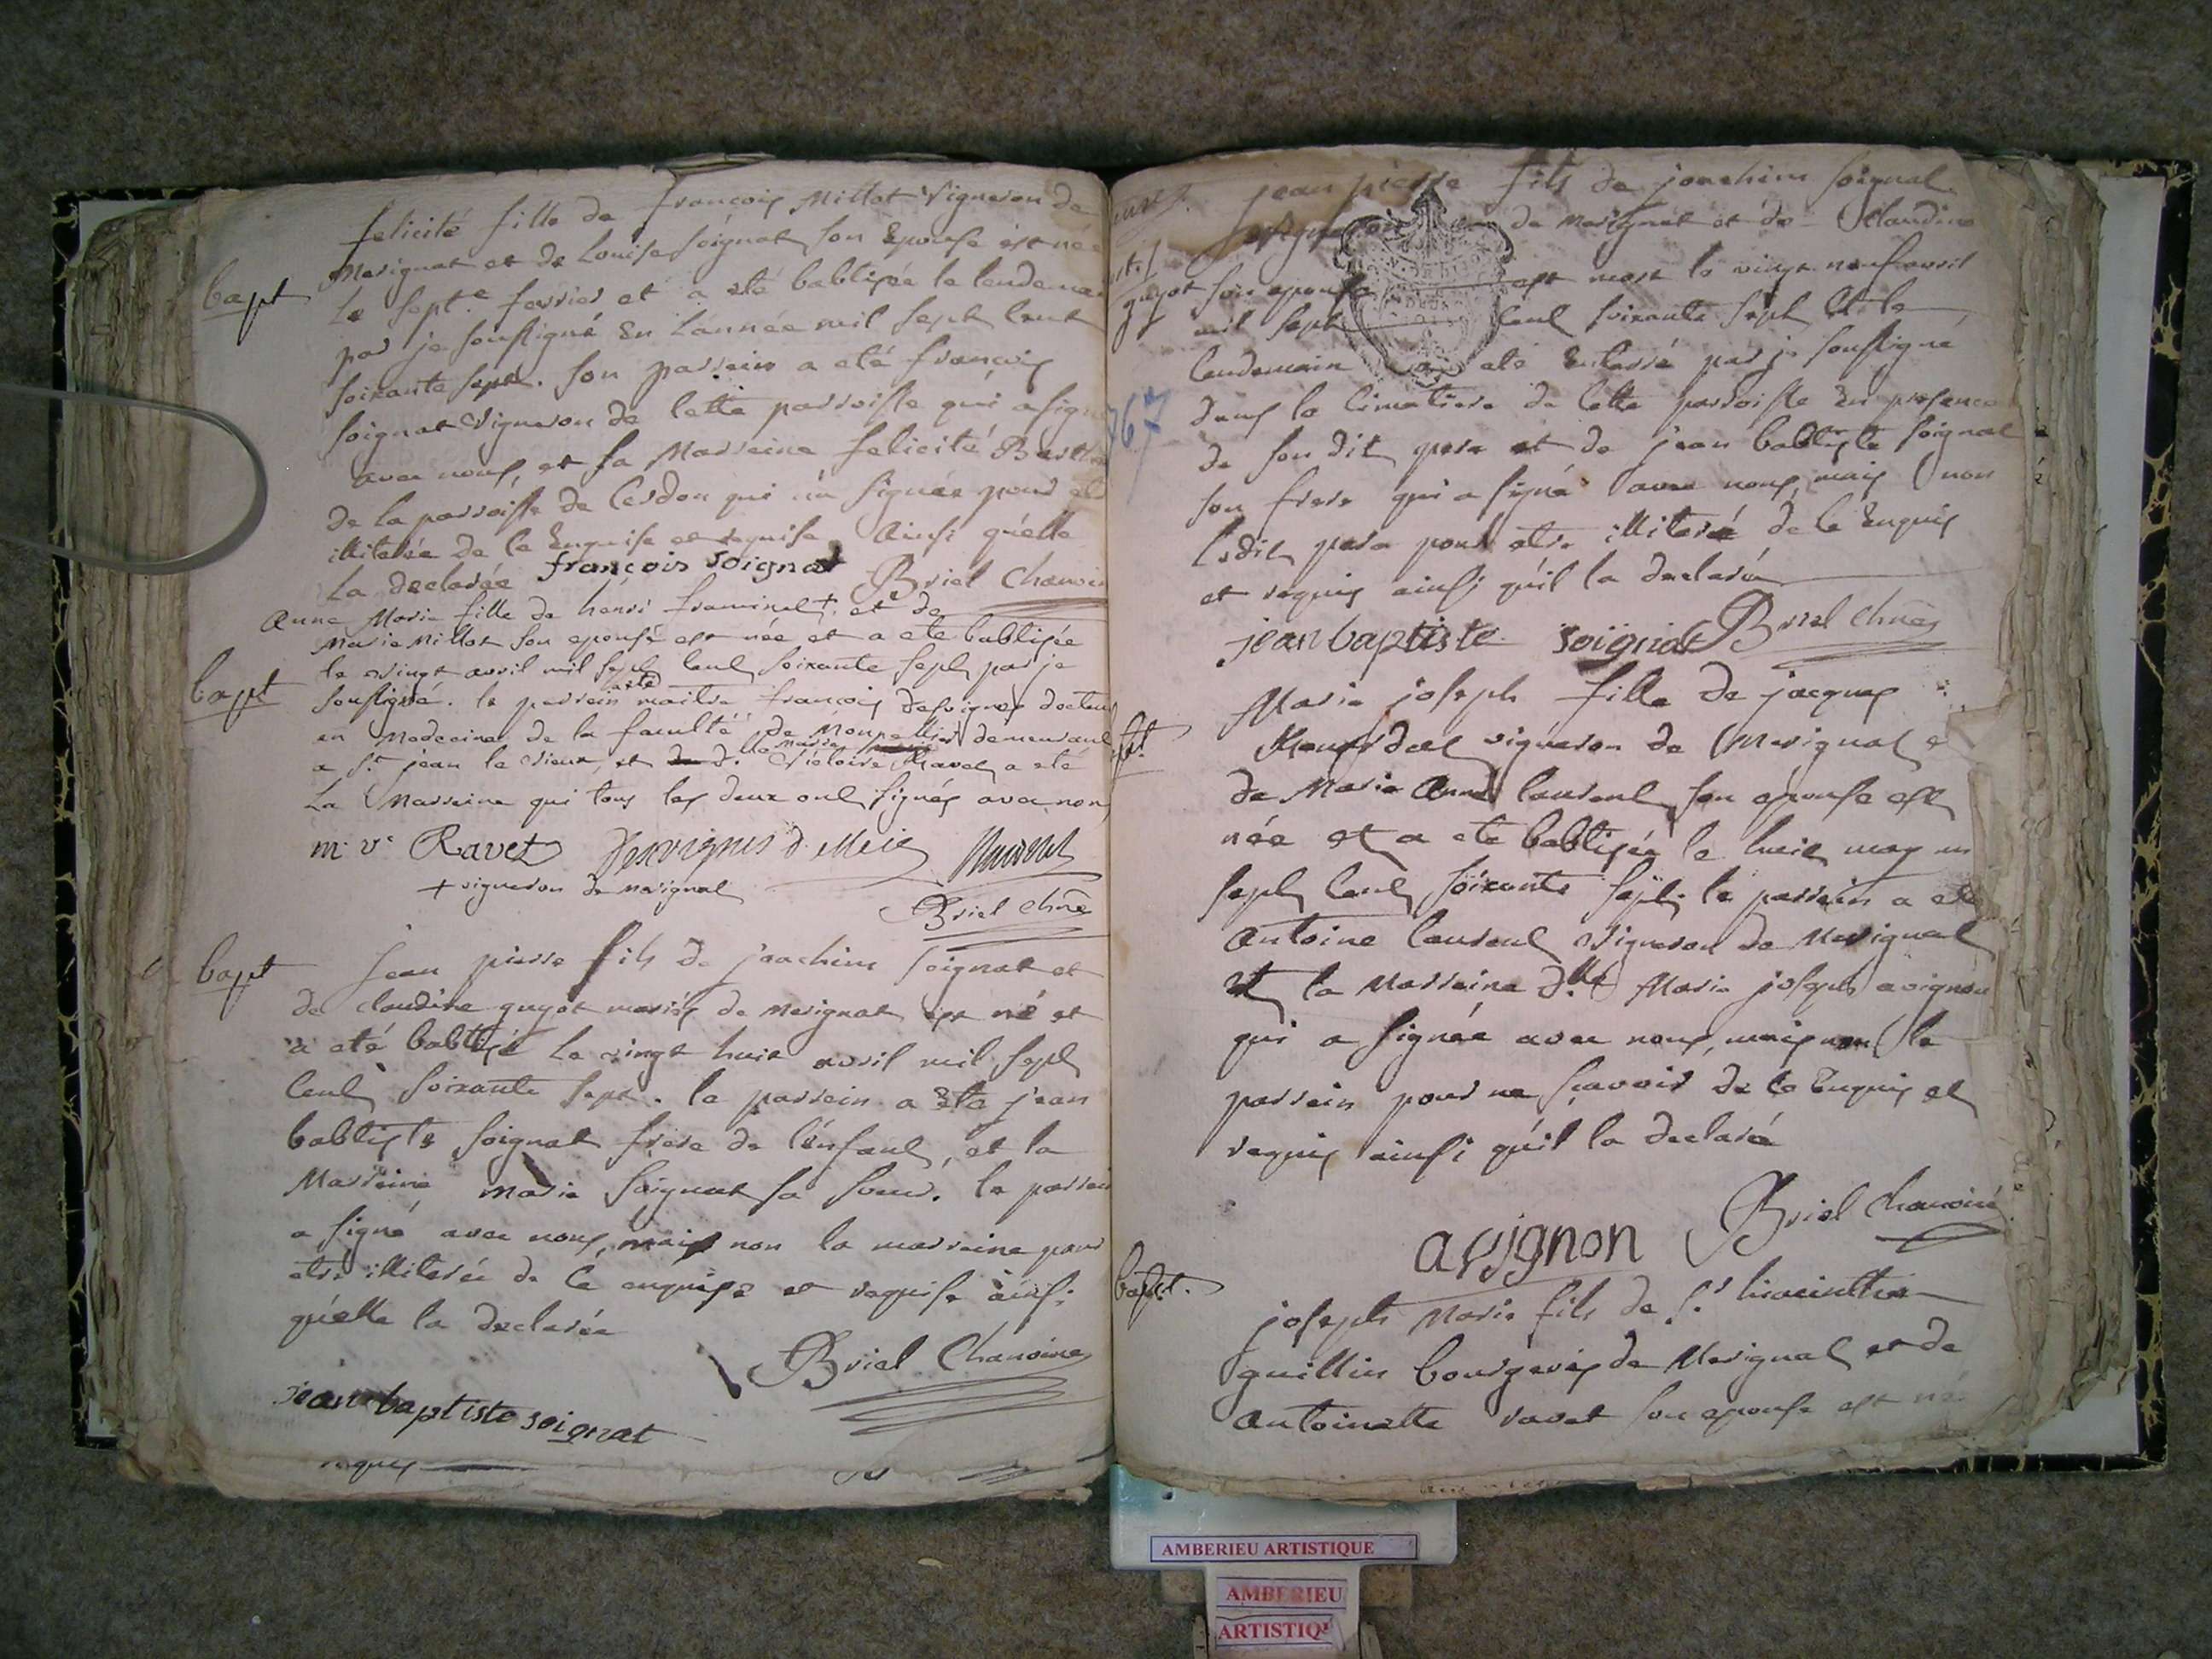 bapt
felicité fille de françois Millot vigneron de
Merignat et de Louise soignat son epouse est née
le sept.e fevrier et a eté babtisée le lendemain
par je soussigné en l'année mil sept cent
soixante sept. son parrein a eté françois
soignat vigneron de cette parroisse qui a signé
avec nous, et sa Marreine felicité
de la parroisse de Cerdon qui n'a signée pour
illiterée de ce enquise et requise ainsi qu'elle
la declarée françois soignat Briel Chanoine
bapt
Anne Marie fille de henri framinet + et de
Marie Millot son epouse est née et a eté babtisée
le vingt avril mil sept cent soixante sept par je
soussigné. le parrein a eté maitre françois desvignes docteur
en Medecine de la faculté de Monpellier demeurant
a St jean le vieux, et dlle marie victoire Ravet a eté
la Marreine qui tous les deux ont signés avec nous
m. v. Ravet Desvignes d. Meie
+ vigneron de merignat
Briel chne
bapt
jean pierre fils de joachim soignat et
de claudine guyot mariés de Merignat est né et
a eté babtisé le vingt huit avril mil sept
cent soixante sept. le parrein a eté jean
babtiste soignat frere de l'enfant, et la
Marreine marie soignat sa soeur. le parrein
a signé avec nous, mais non la marreine pour
etre illiterée de ce enquise et requise ainsi
qu'elle la declarée
Briel Chanoine
jean baptiste soignat
requis
jean pierre fils de joachim soignat
de Merignat et de Claudine
guyot son epouse est mort le vingt neuf avril
mil sept cent soixante sept et le
lendemain a eté enterré par je soussigné
dans le cimetiere de cette parroisse en presence
de son dit pere et de jean babtiste soignat
son frere qui a signé avec nous, mais non
ledit pere pour etre illiteré de ce enquis
et requis ainsi qu'il la declaré
jean baptiste soignat Briel chne
767
Marie joseph fille de jacques
vigneron de Merignat et
de Marie Anne laurent son epouse est
née et a eté babtisée le huit may mil
sept cent soixante sept. le parrein a eté
Antoine laurent vigneron de Merignat
et la Marreine dlle Marie joseph avignon
qui a signée avec nous, mais non le
parrein pour ne scavoir de ce enquis et
requis ainsi qu'il la declaré
avignon Briel Chanoine
bapt.
joseph Marie fils de Sr hiacinthe
guillin bourgeois de Merignat et de
Antoinette ravet son epouse est né
AMBERIEU ARTISTIQUE
AMBERIEU
ARTISTIQ